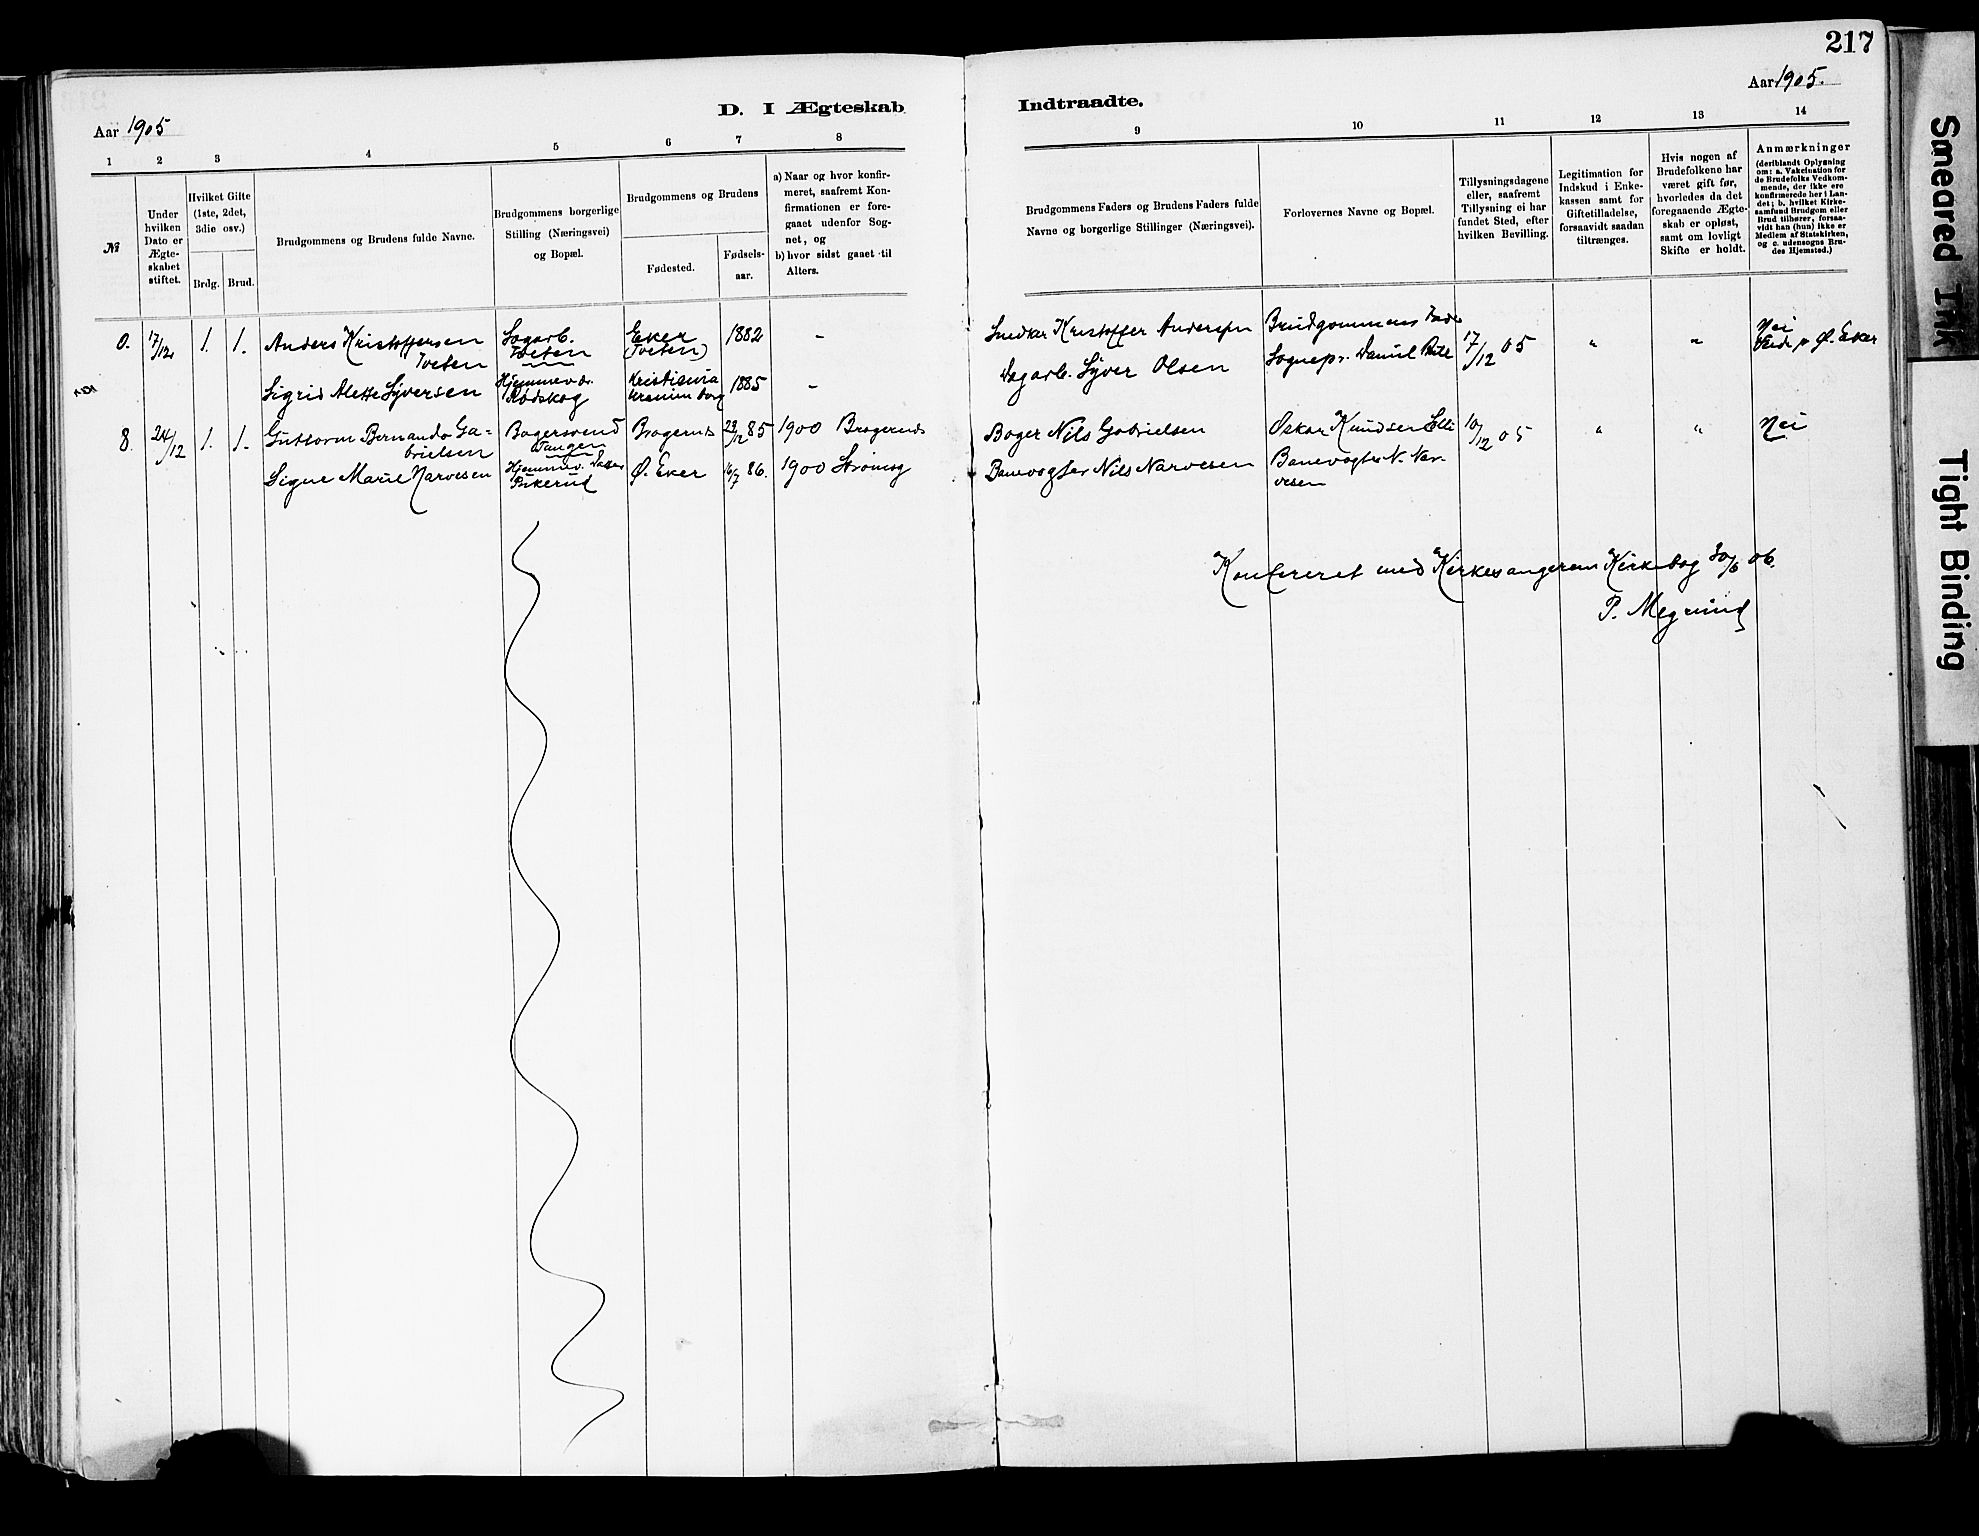 217
Aar 1905
D. I Ægteskab
Indtraadte.
Aar 1905.
1 2 3 4 5 6 7 8
9 10 11 12 13 14
№
Under
hvilken
Dato er
Ægte-
skabet
stiftet.
Hvilket Gifte
(1ste, 2det,
3die osv.)
Brdg. Brud.
Brudgommens og Brudens fulde Navne.
Brudgommens borgerlige
Stilling (Næringsvei)
og Bopæl.
Brudgommens og Brudens
Fødested.
Fødsels-
aar.
a) Naar og hvor konfir-
meret, saafremt Kon-
firmationen er fore-
gaaet udenfor Sog-
net, og
b) hvor sidst gaaet til
Alters.
Brudgommens Faders og Brudens Faders fulde
Navne og borgerlige Stillinger (Næringsvei).
Forlovernes Navne og Bopæl.
Tillysningsdagene
eller, saafremt
Tillysning ei har
fundet Sted, efter
hvilken Bevilling.
Legitimation for
Indskud i Enke-
kassen samt for
Giftetilladelse,
forsaavidt saadan
tiltrænges.
Hvis nogen af
Brudefolkene har
været gift før,
hvorledes da det
foregaaende Ægte-
skab er opløst,
samt om lovligt
Skifte er holdt.
Anmærkninger
(deriblandt Oplysning
om: a. Vakcination for
de Brudefolks Vedkom-
mende, der ikke ere
konfirmerede her i Lan-
det; b. hvilket Kirke-
samfund Brudgom eller
Brud tilhører, forsaa-
vidt han (hun) ikke er
Medlem af Statskirken,
og c. udensogns Bru-
des Hjemsted.)
0. 17/12 1. 1. Anders Kristoffersen
Tveten
Tveten
Eker
(Tveten)
1882 -
Snedker Kristoffer Andersen
Brudgommens
17/12 05 " "
Nei
Ø. Eker
Sigrid Alette Syversen
Rødskog
Kristiania
1885 -
Dagarb. Syver Olsen
Sognepr. Daniel
8. 24/12 1. 1. Guttorm Bernando Ga=
brielsen
Bagersvend
Tangen
Bragernes 23/12 85 1900 Bragernes
Bager Nils Gabrielsen
Oskar Knudsen
10/12 05 " " Nei
Signe Marie Narvesen
Ø. Eker 16/7 86. 1900 Strømsg
Banevogter Nils Narvesen
Banevogter N. Nar-
vesen
Konfereret med Kirkesangerens Kirkebog 30/6 06.
Smeared Ink
Tight Binding